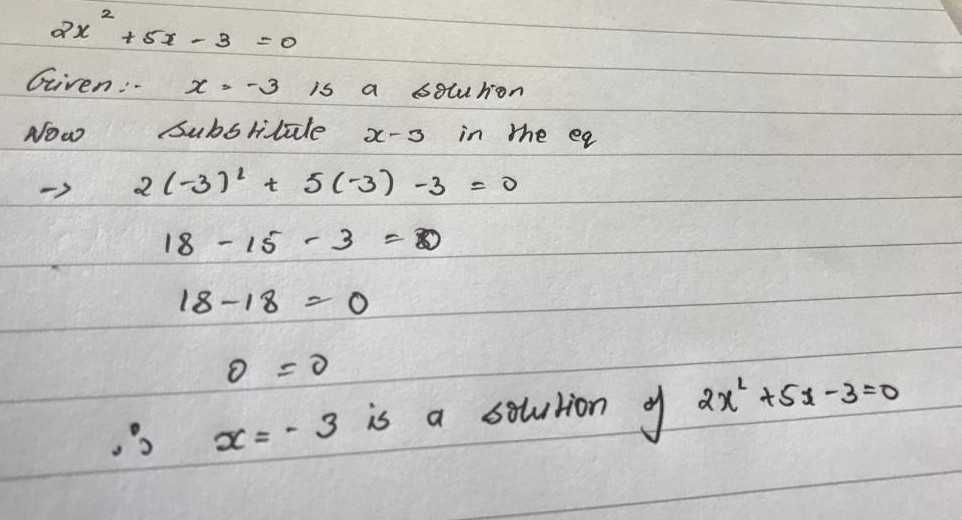 2x² + 5x - 3 = 0
Given :- x = -3 is a solution
Now substitute x-3 in the eq
-> 2(-3)² + 5(-3) -3 = 0
18 - 15 - 3 = 0
18 - 18 = 0
0 = 0
∴ x = - 3 is a solution of 2x² + 5x - 3 = 0